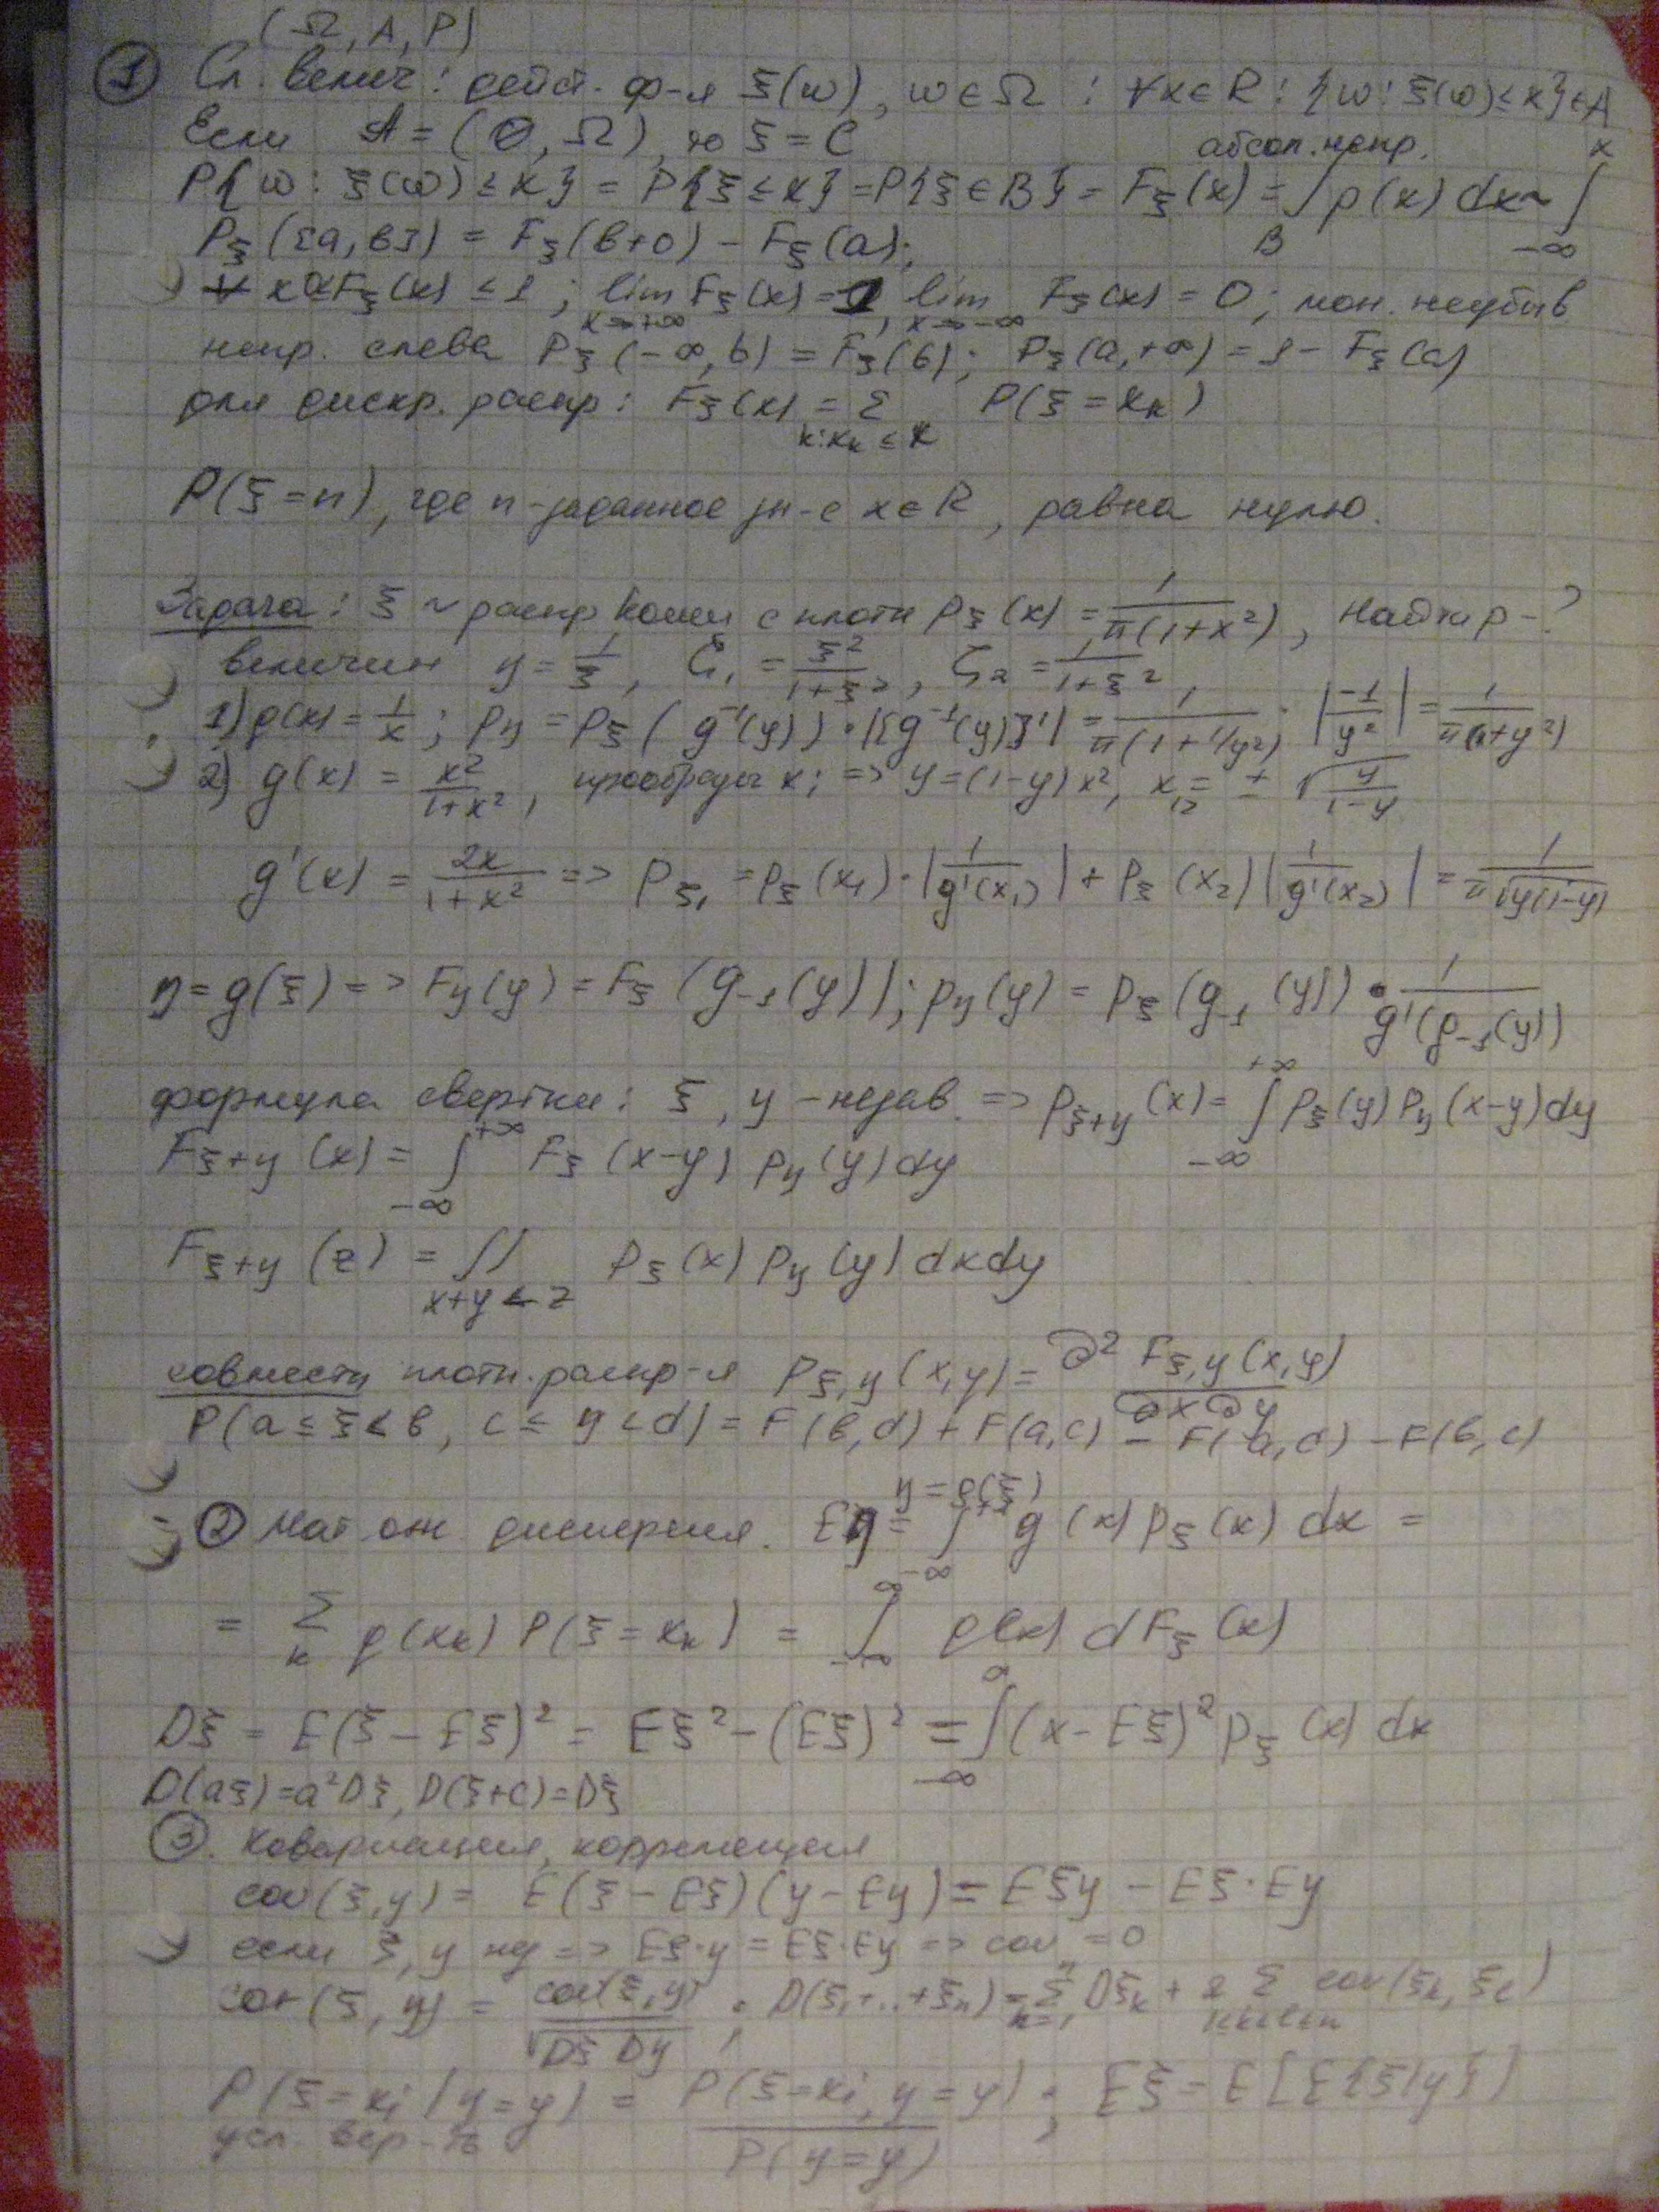 (Ω, A, P)
① Сл. велич: дейст. ф-я ξ(ω), ω∈Ω : ∀x∈R : {ω: ξ(ω)≤x}∈A
Если A = (∅, Ω), то ξ = C
абсол. непр.
P{ω: ξ(ω) ≤ x} = P{ξ ≤ x} = P{ξ ∈ B} = Fξ(x) = ∫_B p(x) dx ~ ∫_{-∞}^{x}
Pξ([a, b]) = Fξ(b+0) − Fξ(a);
∀ x 0≤Fξ(x) ≤ 1; lim_{x→+∞} Fξ(x) = 1, lim_{x→−∞} Fξ(x) = 0; мон. неубыв
непр. слева Pξ(−∞, b) = Fξ(b); Pξ(a, +∞) = 1 − Fξ(a)
для дискр. распр: Fξ(x) = Σ_{k: xk ≤ x} P(ξ = xk)
P(ξ = n), где n-заданное зн-е x∈R, равна нулю.
Задача: ξ ~ распр Коши с плотн pξ(x) = 1/(π(1+x²)), Найти p-?
величин η = 1/ξ, ζ₁ = ξ²/(1+ξ²), ζ₂ = 1/(1+ξ²)
1) g(x) = 1/x; pη = pξ(g⁻¹(y)) · |[g⁻¹(y)]'| = 1/(π(1+1/y²)) · |−1/y²| = 1/(π(1+y²))
2) g(x) = x²/(1+x²), прообразы xi => y = (1−y)x², x₁,₂ = ± √(y/(1−y))
g'(x) = 2x/(1+x²) => pξ₁ = pξ(x₁) · |1/g'(x₁)| + pξ(x₂) |1/g'(x₂)| = 1/(π√(y(1−y)))
η = g(ξ) => Fη(y) = Fξ(g₋₁(y)); pη(y) = pξ(g₋₁(y)) · 1/g'(g₋₁(y))
формула свертки: ξ, η − незав. => pξ+η(x) = ∫_{−∞}^{+∞} pξ(y) pη(x−y) dy
Fξ+η(x) = ∫_{−∞}^{+∞} Fξ(x−y) pη(y) dy
Fξ+η(z) = ∬_{x+y<z} pξ(x) pη(y) dxdy
совместн плотн. распр-я pξ,η(x,y) = ∂² Fξ,η(x,y)/∂x∂y
P(a ≤ ξ < b, c ≤ η < d) = F(b,d) + F(a,c) − F(a,d) − F(b,c)
η = g(ξ)
② Мат ож дисперсия. Eη = ∫_{−∞}^{+∞} g(x) pξ(x) dx =
= Σ_k g(xk) P(ξ = xk) = ∫_{−∞}^{∞} g(x) dFξ(x)
Dξ = E(ξ − Eξ)² = Eξ² − (Eξ)² = ∫_{−∞}^{∞} (x − Eξ)² pξ(x) dx
D(aξ) = a²Dξ, D(ξ+c) = Dξ
③. Ковариация, корреляция
cov(ξ, η) = E(ξ − Eξ)(η − Eη) = Eξη − Eξ·Eη
если ξ, η нез => Eξ·η = Eξ·Eη => cov = 0
cor(ξ, η) = cov(ξ, η)/√(Dξ Dη); D(ξ₁+..+ξn) = Σ_{k=1}^{n} Dξk + 2 Σ_{1≤k<l≤n} cov(ξk, ξl)
P(ξ = xi / η = y) = P(ξ = xi, η = y)/P(η = y); Eξ = E[E{ξ|η}]
усл. вер-ть